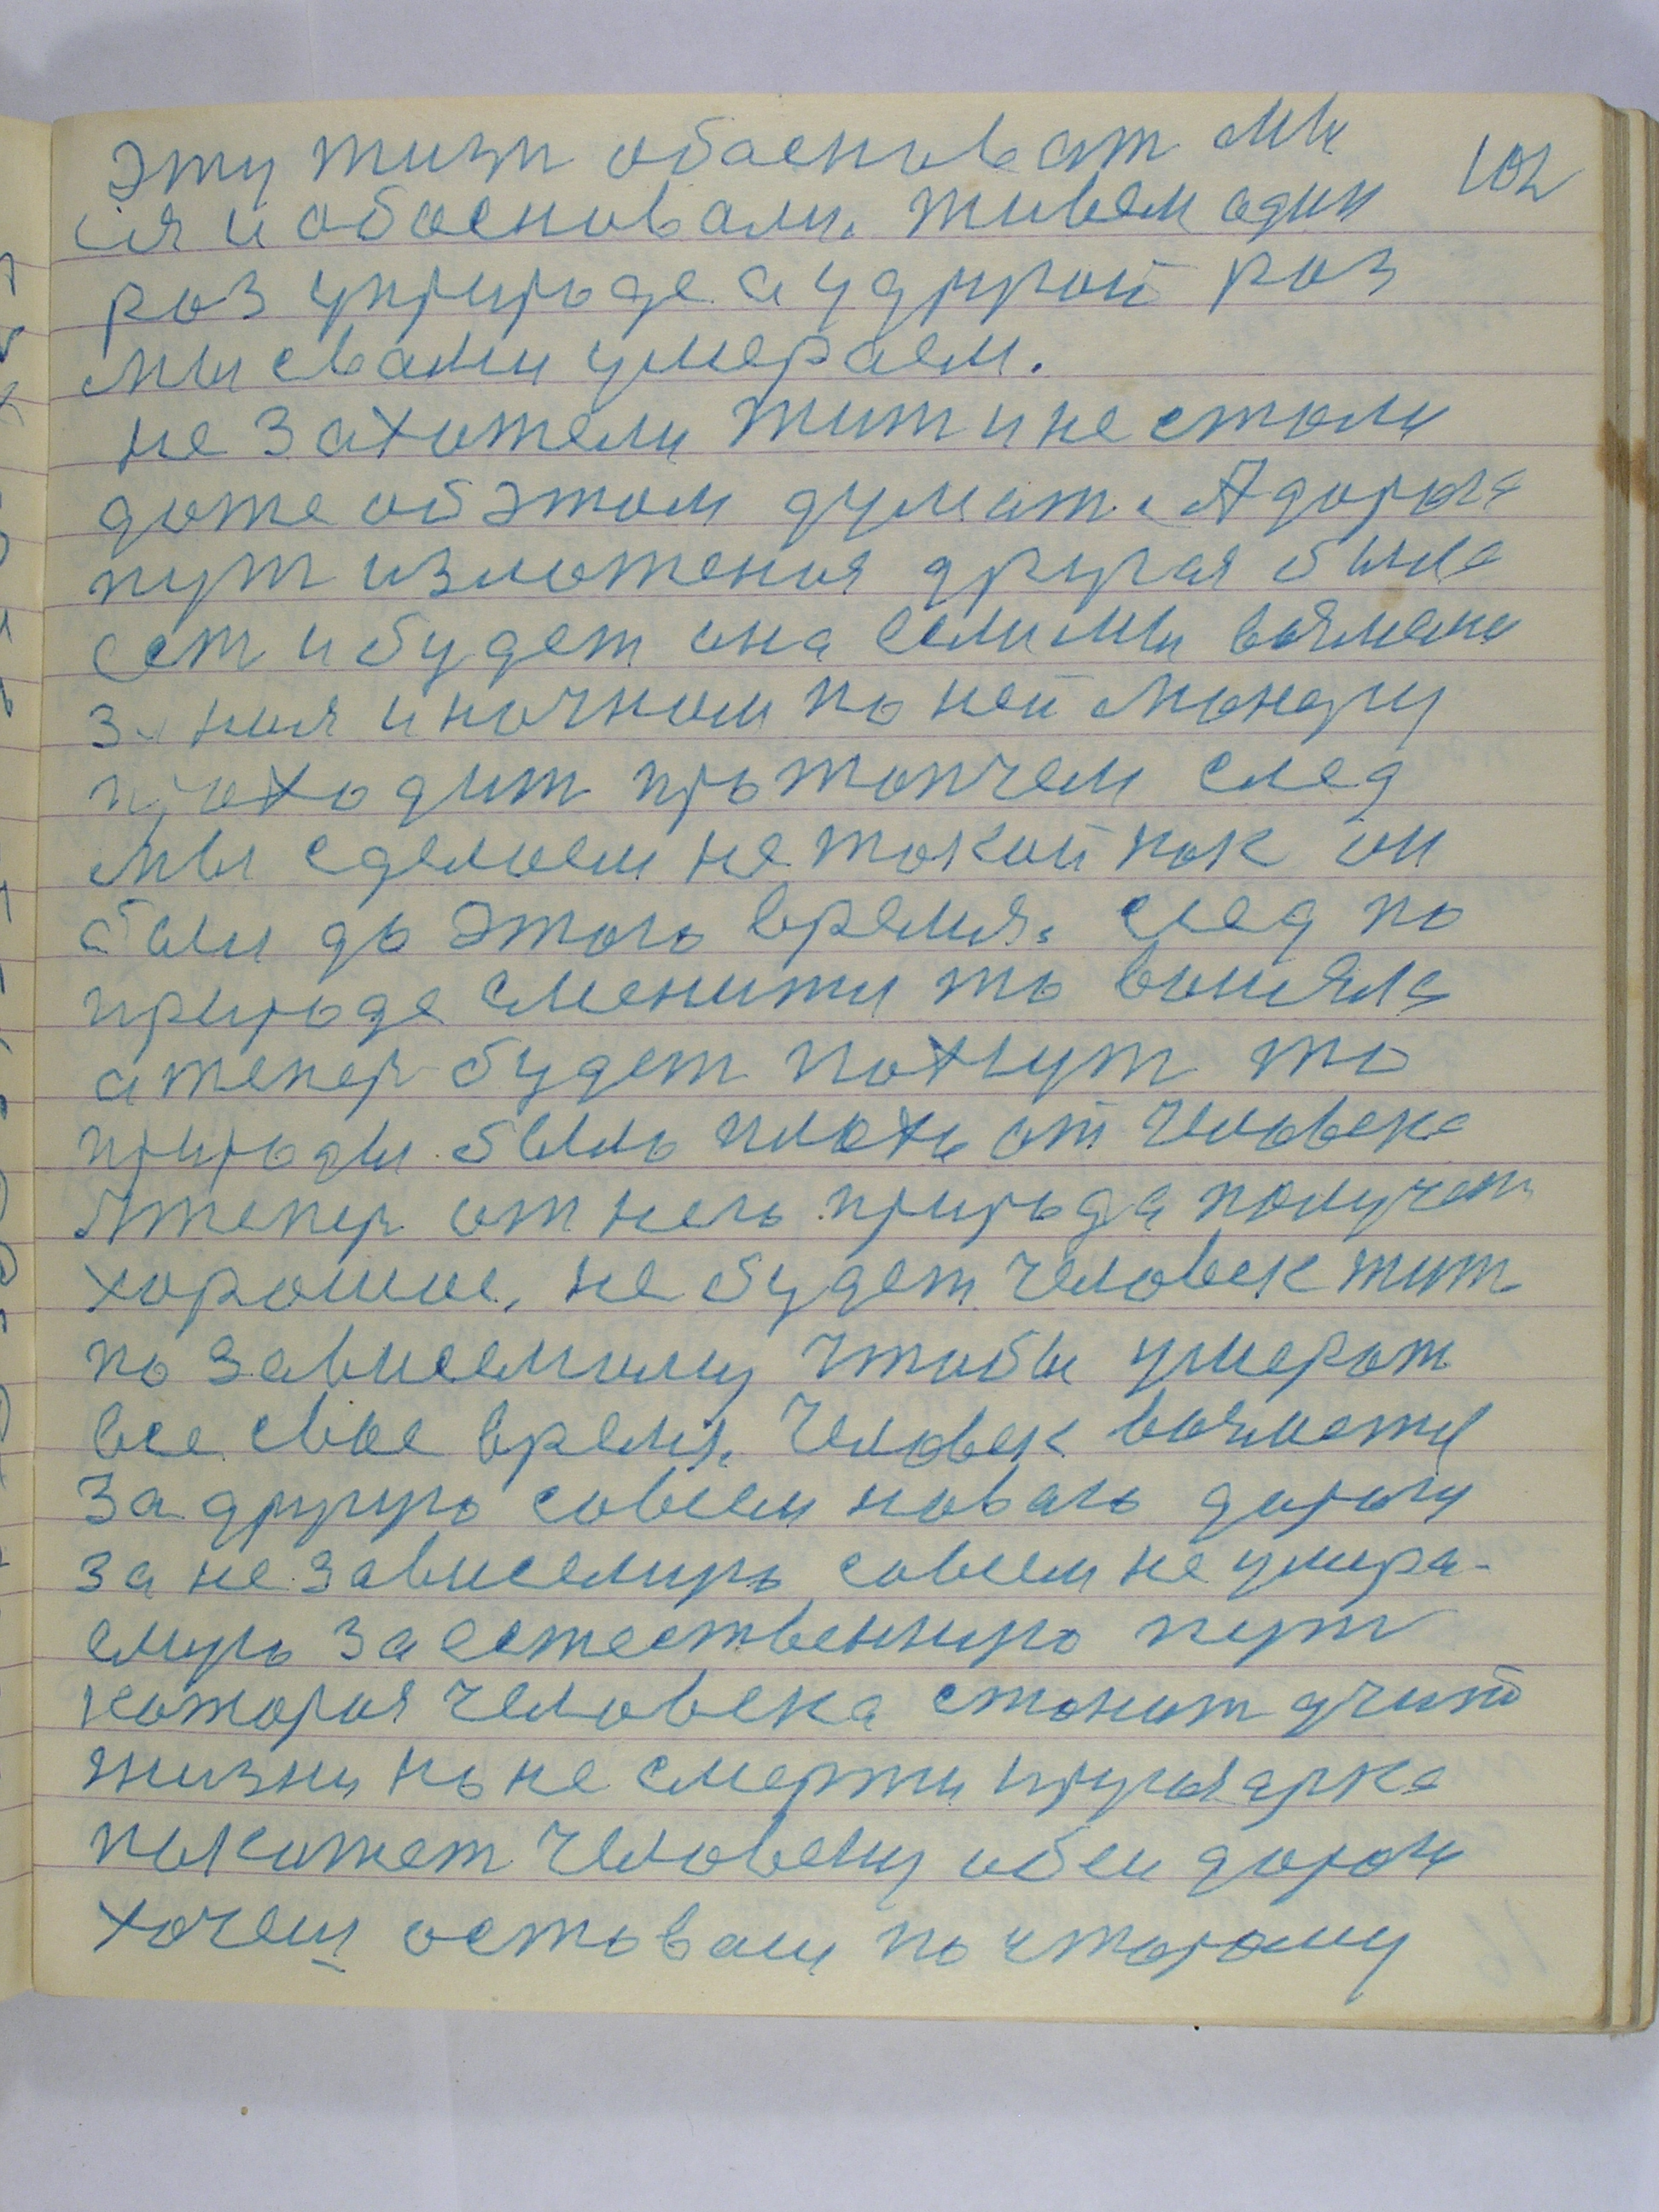 102
эту жизн обасноват мы
ся и обосновали. живем один
роз уприроде а удругой роз
мы свами умераем.
не захотели жит и не стоми
доже об этом думат. А дорога
пут изложения другая была
ест и будет она если мы возмемся
за ния и ночном по ней между
проходит протопчем след
мы сделоем не токой кок он
были до этого время. след по
природе сменити то вонияла
а тепер будет похнут то
природы было плохо от человека
Атепер от него природа получет
хорошое. не будет человек жит
по зависемому чтобы умерат
все свое время. Человек возметце
за другую совсем новаю дорогу
за не зависемую совсем не умира-
емую за естественную пут
которая человека станит учит
жизни но не смерти природа
покожет человеку обеи дороги
хочеш оставаи по старому